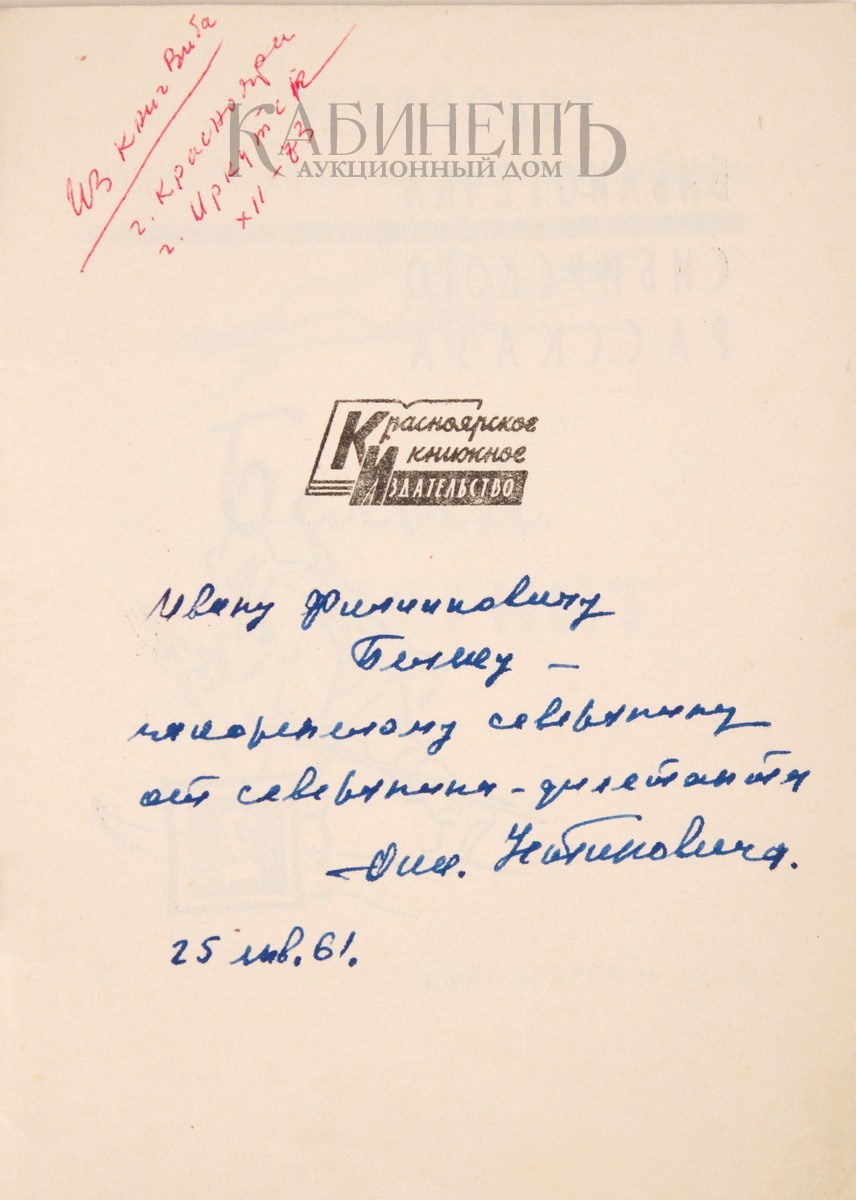 Из книг Виба
г. Красноярск
г. Иркутск
XII - 83
КАБИНЕТЪ
АУКЦИОННЫЙ ДОМ
БИБЛИОТЕКА
СИБИРСКОГО
РАССКАЗА
Красноярское
книжное
Издательство
Ивану Филипповичу
закоренелому северянину
от северянина - дилетанта
25 янв. 61.